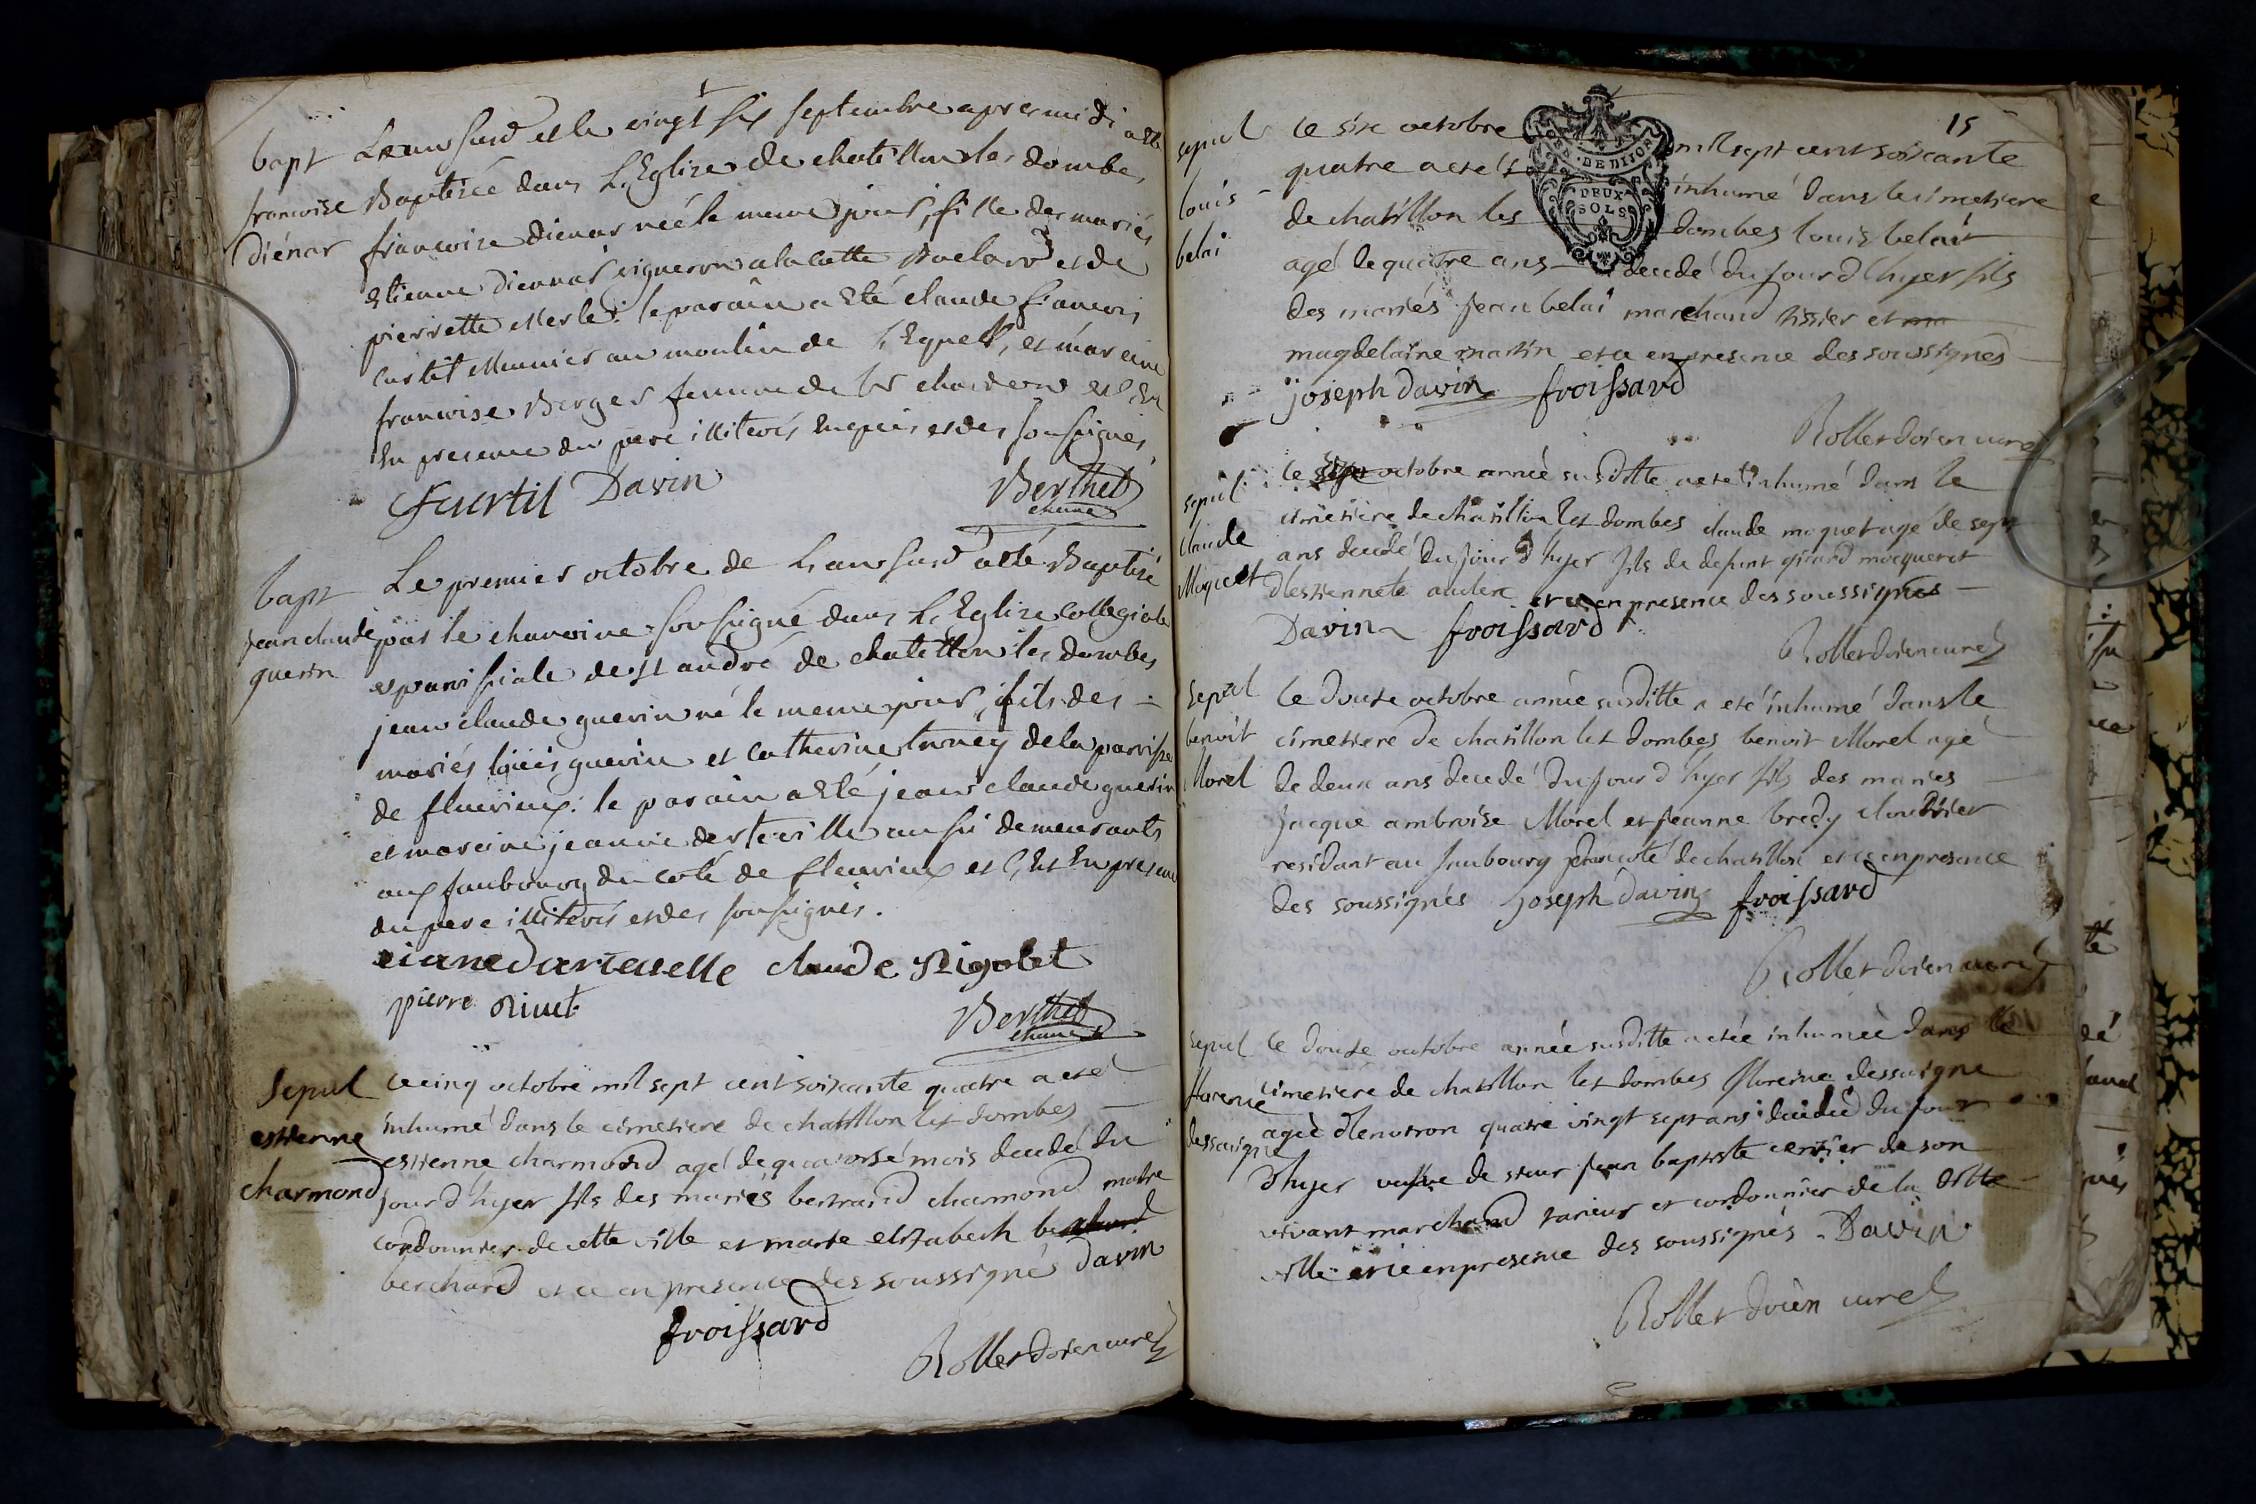 bapt
francoise
diénar
L'an susd et le vingt six septembre apres midi a ete
Baptisée dans L'Eglise de chatillon les dombes
francoise dienar née le meme jour, fille des mariés
Etienne diennar vigneron a la cotte et de
pierrette Merle: le parain a eté claude francois
curtil Meunier au moulin de et maraine
francoise Berger femme de
En presence du pere illiteré enquis et des soussignés
Fcurtil Davin
Berthet
chane
bapt
jean claude
guerin
Le premier octobre de L'an susd a eté Baptisé
par le chanoine soussigné dans L'Eglise collegiale
et parroissiale de st andré de chatillon les dombes
jean claude guerin né le meme jour, fils des
mariés loüis guerin et catherine de la parroisse
de fluerieux: le parain a eté jean claude guerin
et maraine jeanne aussi demeurants
aux faubourg du coté de fleurieux et c'est En presence
du pere illiteré et des soussignés.
claude Rigolet
pierre
Berthet
chane
sepul
estienne
charmond
Le cinq octobre mil sept cent soixante quatre a eté
inhumé dans le cimetiere de chatillon les dombes
estienne charmond agé de quatorse mois decedé du
jour d'hyer fils des mariés bertrand charmond maitre
cordonnier de cette ville et marie elizabeth
berchard et ce en presence des soussignés Davin
froissard
Rollet doien curé
15
GEN. DE DIJON
DEUX
SOLS
sepul
louis
belai
Le six octobre mil sept cent soixante
quatre a eté inhumé dans le cimetiere
de chatillon les dombes louis belai
agé de quatre ans decedé du jour d'hyer fils
des mariés jean belai marchand tissier et ma
magdelaine martin et ce en presence des soussignés
joseph Davin froissard
Rollet doien curé
sepul
claude
Moquet
Le octobre année susditte a eté inhumé dans le
cimetiere de chatillon les dombes claude moquet agé de sept
ans decedé du jour d'hyer fils de defunt girard moqueret
d'estiennete et ce en presence des soussignés
Davin froissard
Rollet doien curé
sepul
benoit
Morel
Le douse octobre année susditte a eté inhumé dans le
cimetiere de chatillon les dombes benoit Morel agé
de deux ans decedé du jour d'hyer fils des mariés
jacque ambroise Morel et jeanne bredy
residant au faubourg de chatillon et ce en presence
des soussignés joseph davin froissard
Rollet doien curé
sepul
florence
dessaigne
Le douse octobre année susditte a etée inhumée dans le
cimetiere de chatillon les dombes dessaigne
agée d'environ quatre vingt sept ans decedée du jour
d'hyer veuve de sieur jean baptiste de son
vivant marchand taneur et cordonnier de la ditte
ville et ce en presence des soussignés Davin
Rollet doien curé